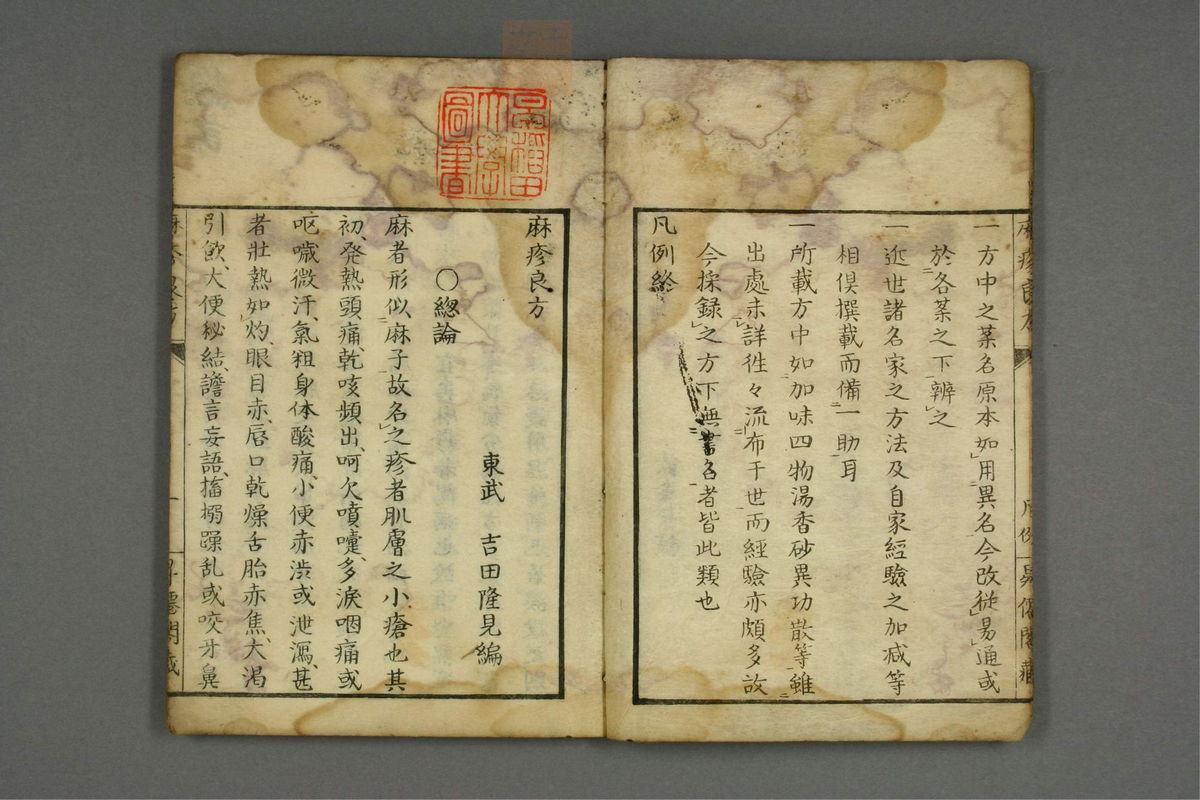 一方中之薬名原本如用異名今改従易通或
於各薬之下辨之
一近世諸名家之方法及自家経験之加减等
相倶撰載而備一助耳
一所載方中如加味四物湯香砂異功散等雖
出處未詳徃々流布于世而経驗亦頗多故
今採録之方下無書名者皆此類也
凡例終
早稲田大學圖書
麻疹良方
東武 吉田隆見編
○総論
麻者形似麻子故名之疹者肌膚之小瘡也其
初発熱頭痛乾咳頻出呵欠噴嚏多涙咽痛或
呕噦微汗氣粗身体酸痛小便赤渋或泄瀉甚
者壮熱如灼眼目赤唇口乾燥舌胎赤焦大渇
引飲大便秘結譫言妄語搐搦躁乱或咬牙鼻